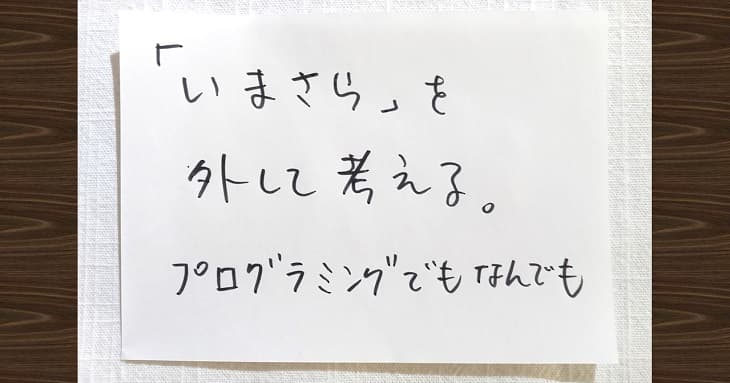 「いまさら」を
外して考える。
プログラミングでもなんでも